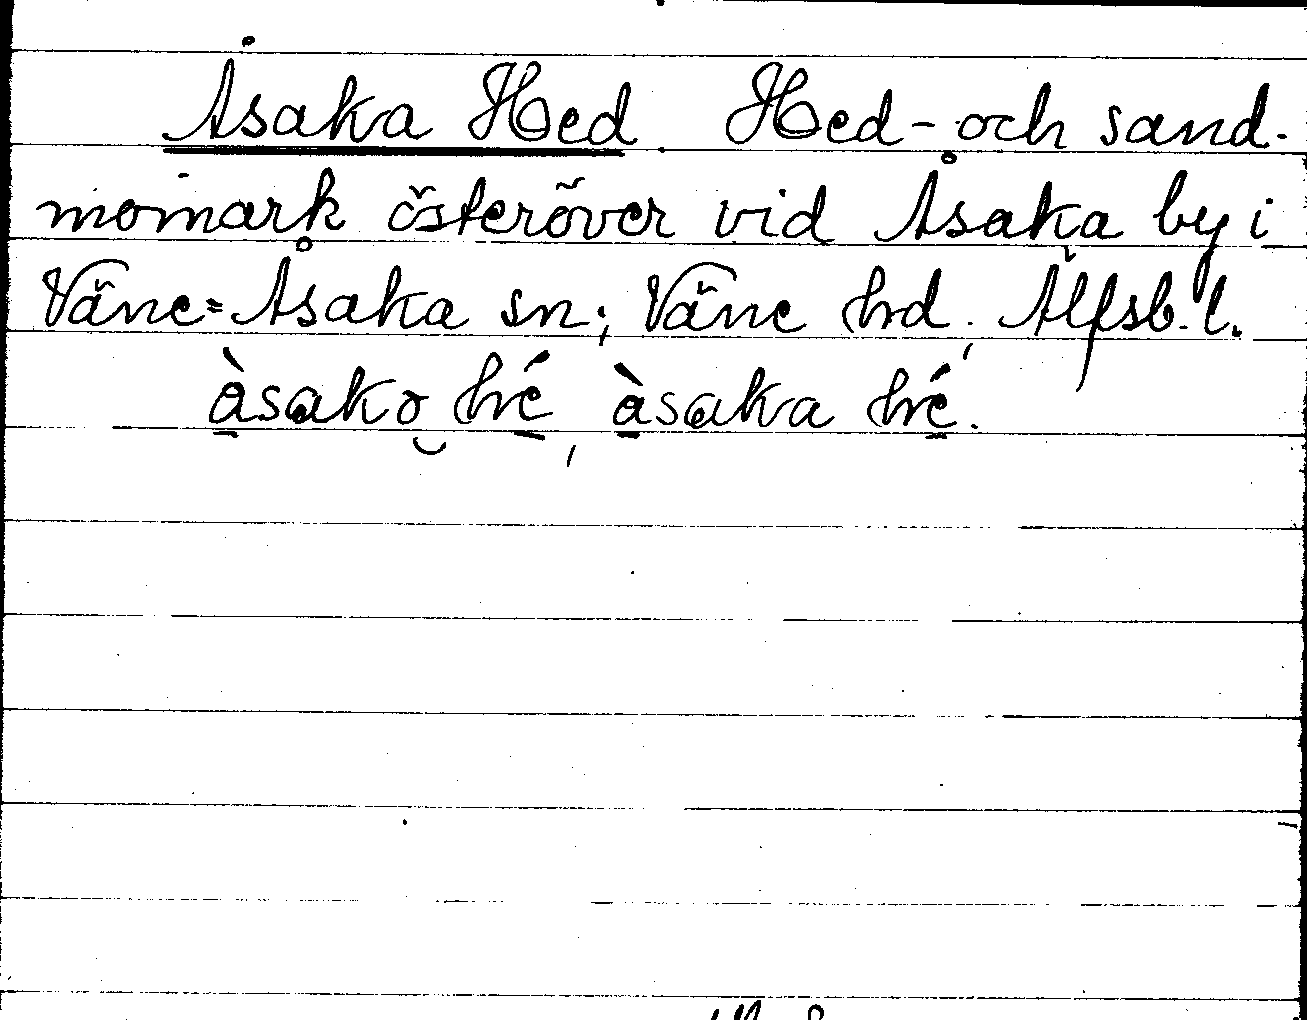 Åsaka Hed. Hed- och sand-
momark österöver vid Åsaka by i
Väne=Åsaka sn; Väne hd, Älfsb. l.
àsako hé, àsaka hé.